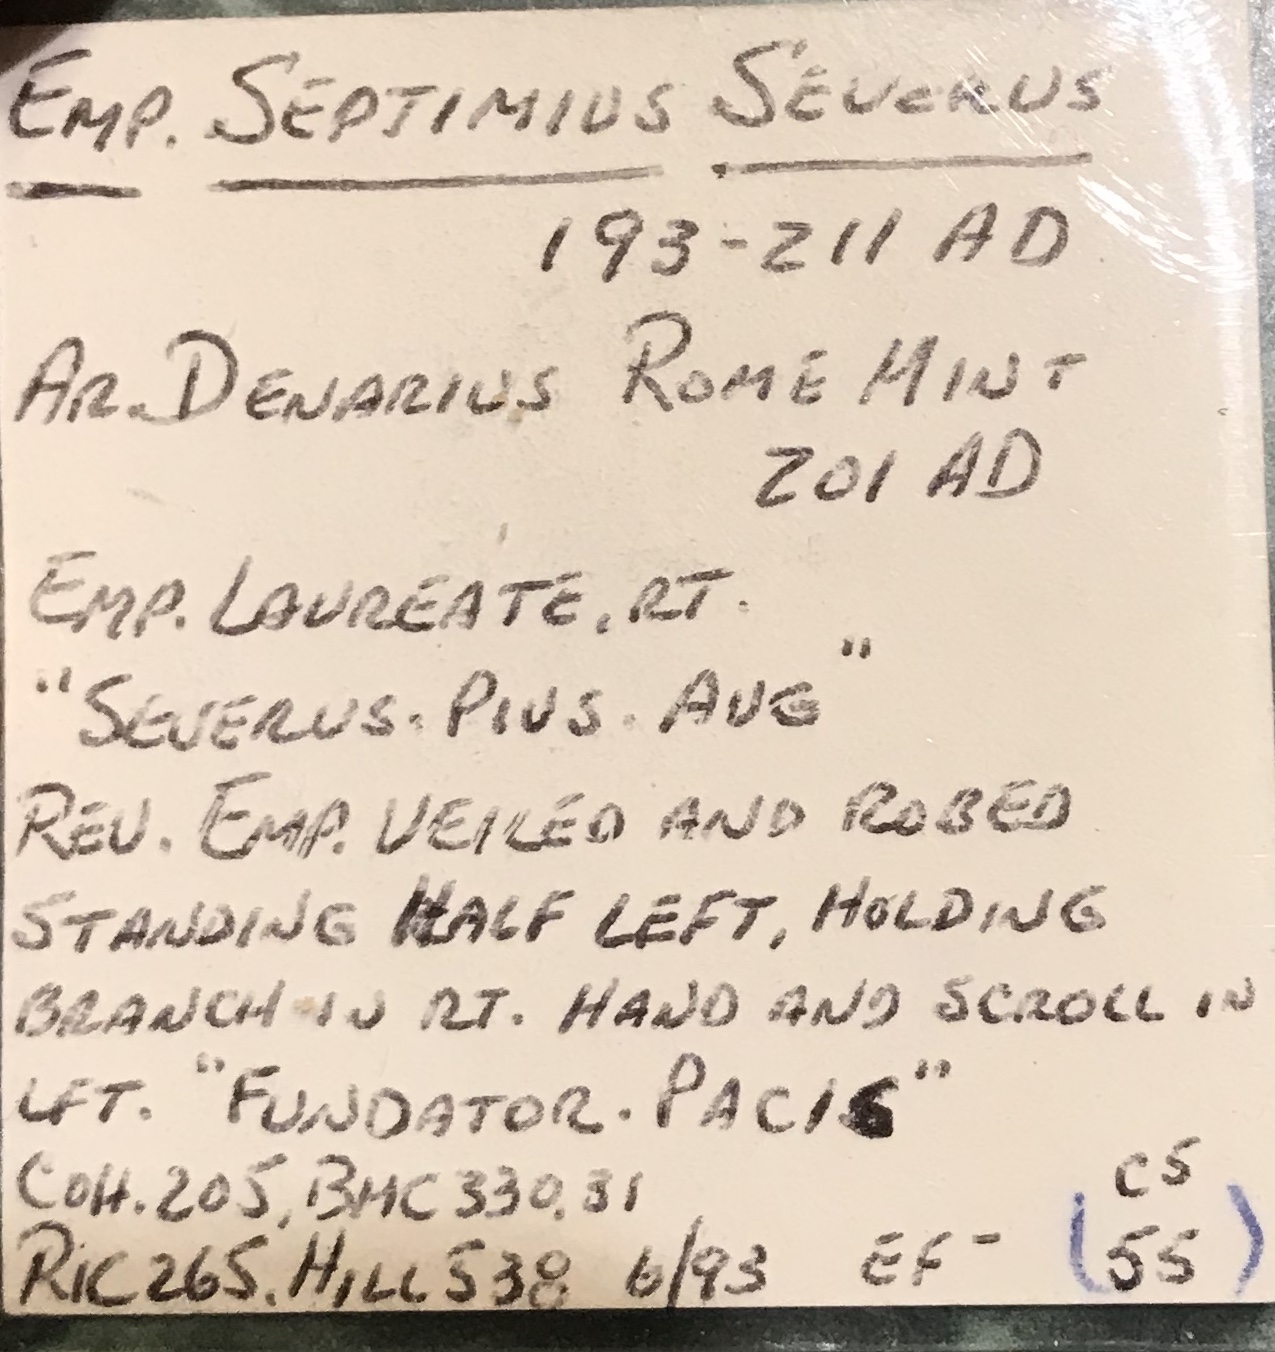 EMP. SEPTIMIUS SEVERUS
193-211 AD
AR. DENARIUS ROME MINT
201 AD
EMP. LAUREATE, RT.
"SEVERUS. PIUS. AUG"
REV. EMP. VEILED AND ROBED
STANDING HALF LEFT, HOLDING
BRANCH IN RT. HAND AND SCROLL IN
LFT. "FUNDATOR. PACIS"
COH. 205, BMC 330.31
RIC 265. HILL 538 6/93 EF- C5
(55)